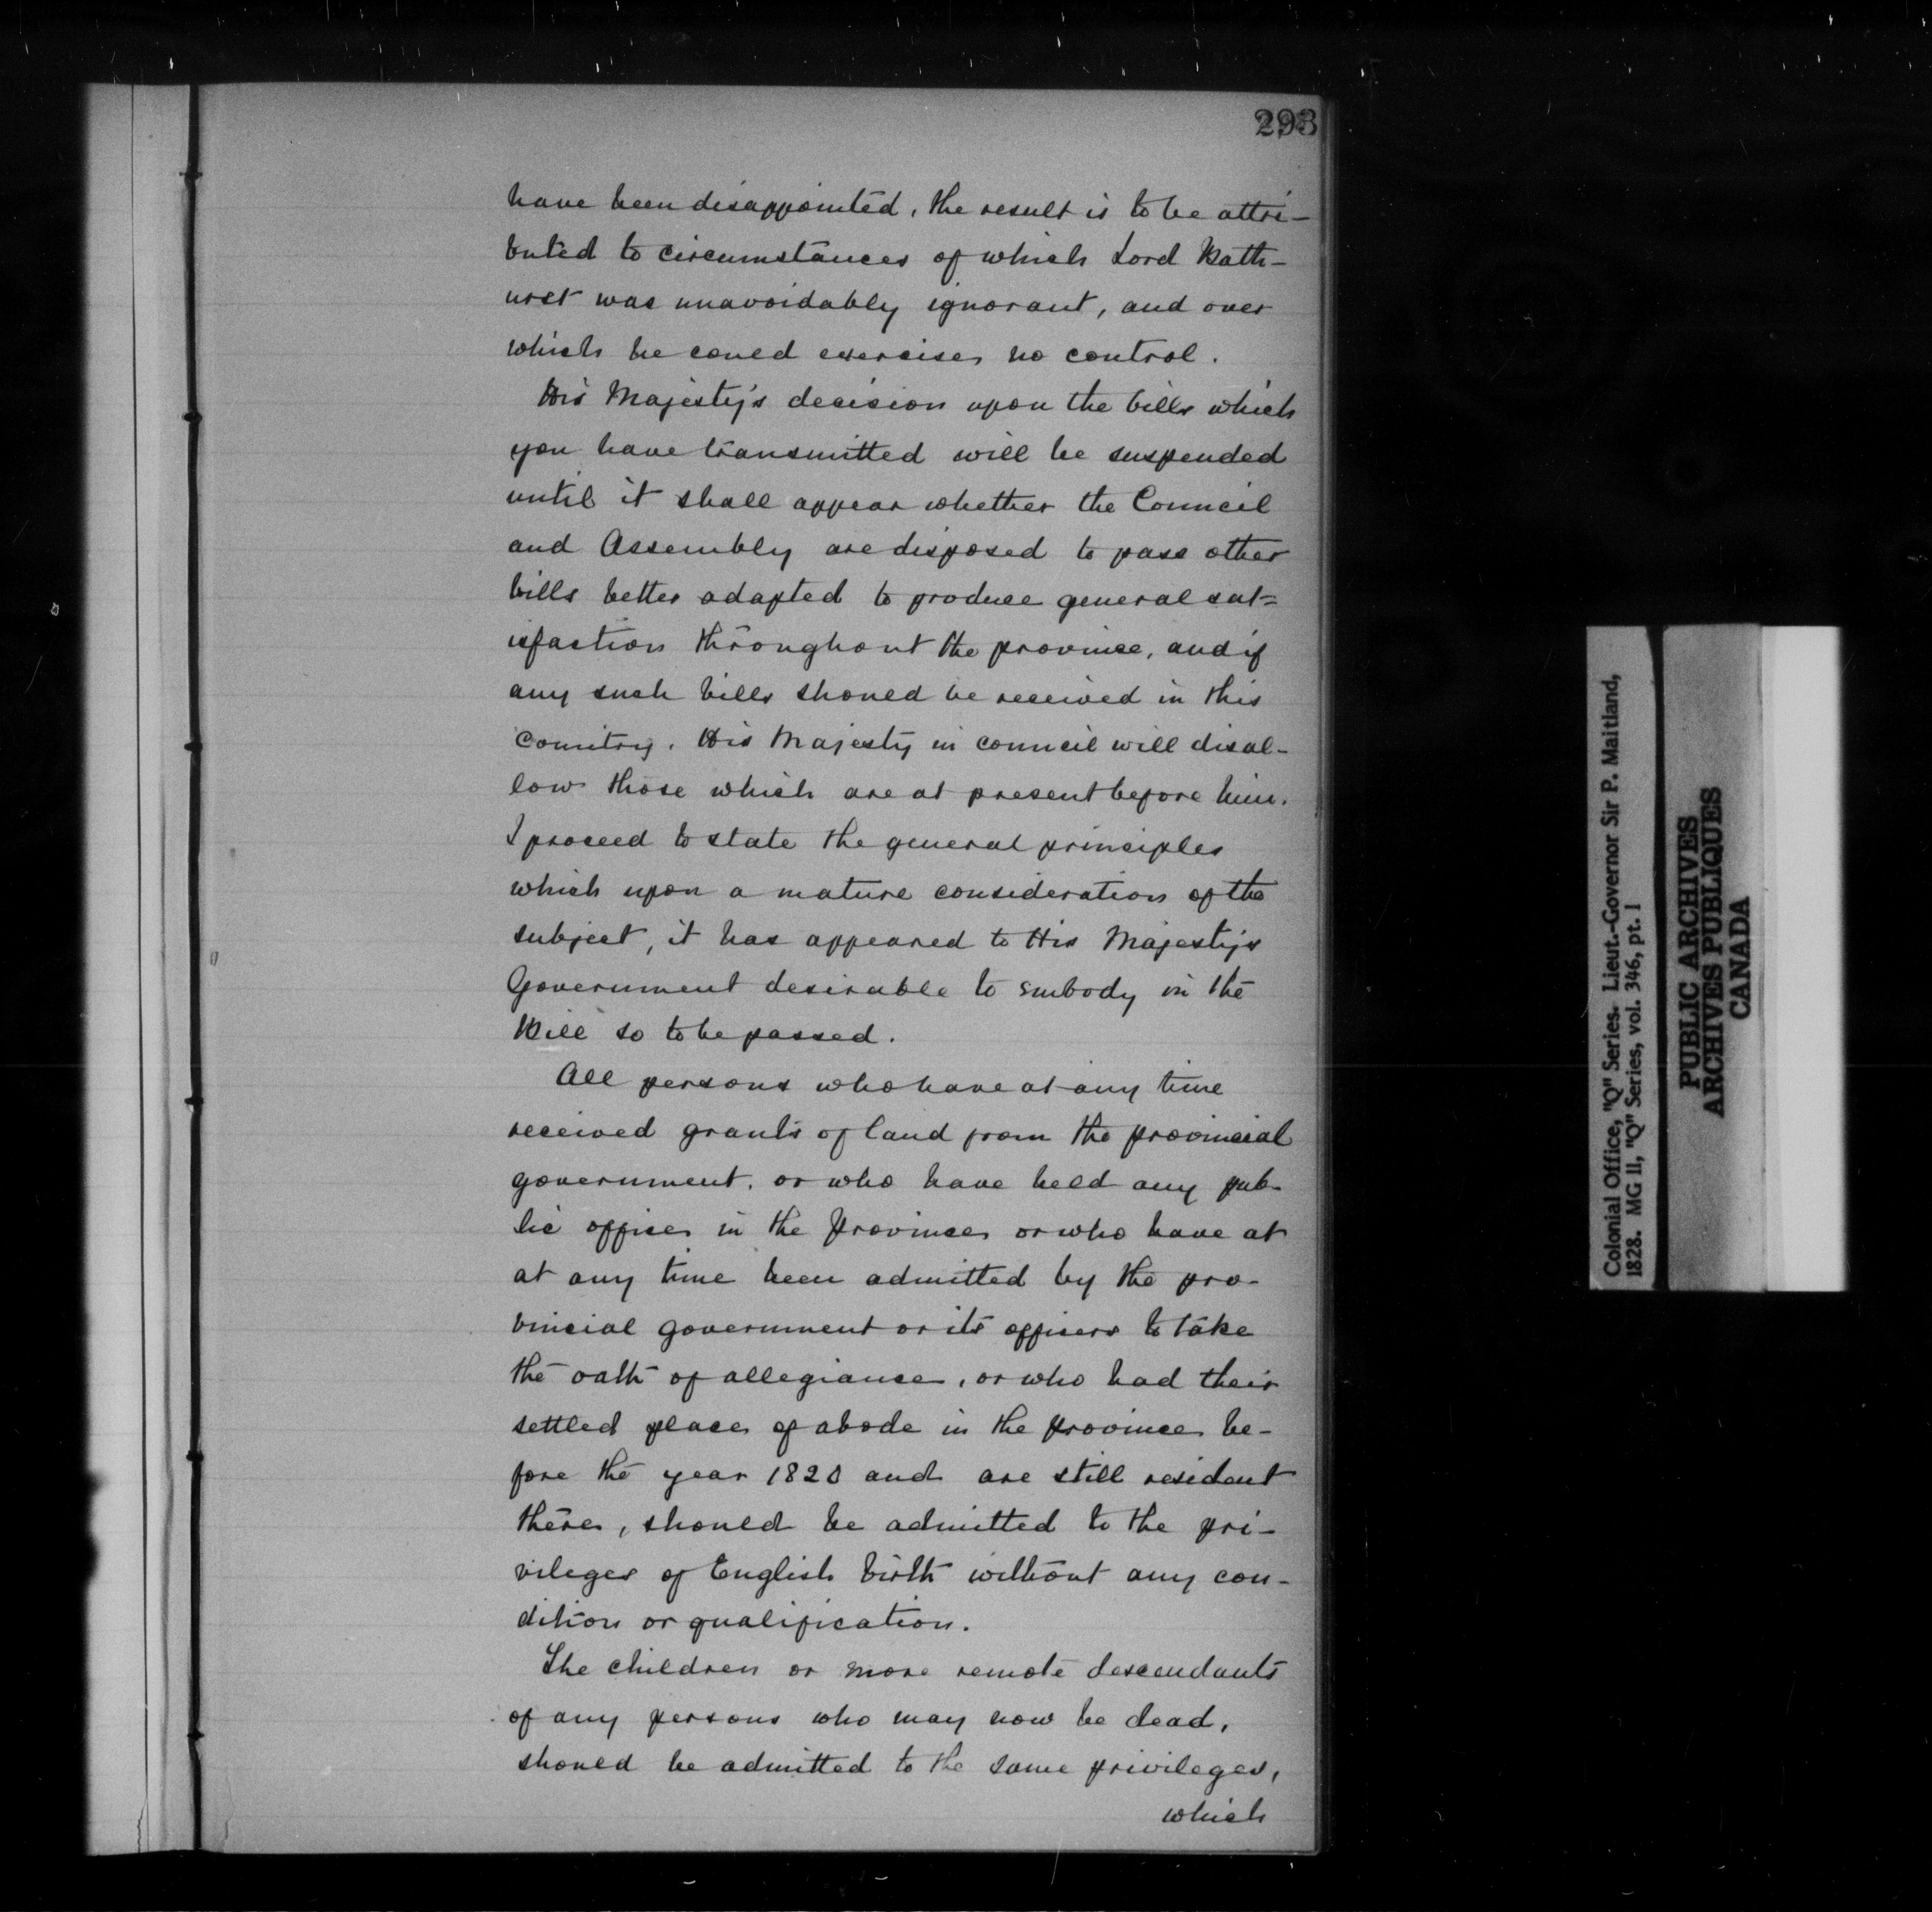 293
have been disappointed, the result is to be attri-
buted to circumstances of which Lord Bath-
urst was unavoidably ignorant, and over
which he could exercise no control.
His Majesty's decision upon the bills which
you have transmitted will be suspended
until it shall appear whether the Council
and Assembly are disposed to pass other
bills better adapted to produce general sat=
isfaction throughout the province, and if
any such bills should be received in this
Country. His Majesty in council will disal-
low those which are at present before him.
I proceed to state the general principles
which upon a mature consideration of the
subject, it has appeared to His Majesty's
Government desirable to embody in the
Bill so to be passed.
All persons who have at any time
received grants of land from the provincial
government, or who have held any pub-
lic office in the Province or who have at
at any time been admitted by the pro-
vincial government or its officers to take
the oath of allegiance, or who had their
settled place of abode in the province be-
fore the year 1820 and are still resident
there, should be admitted to the pri-
vileges of English birth without any con-
dition or qualification.
The children or more remote descendants
of any persons who may now be dead,
should be admitted to the same privileges,
which
Colonial Office, "Q" Series. Lieut.-Governor Sir P. Maitland,
1828. MG 11, "Q" Series, vol. 346, pt. 1
PUBLIC ARCHIVES
ARCHIVES PUBLIQUES
CANADA